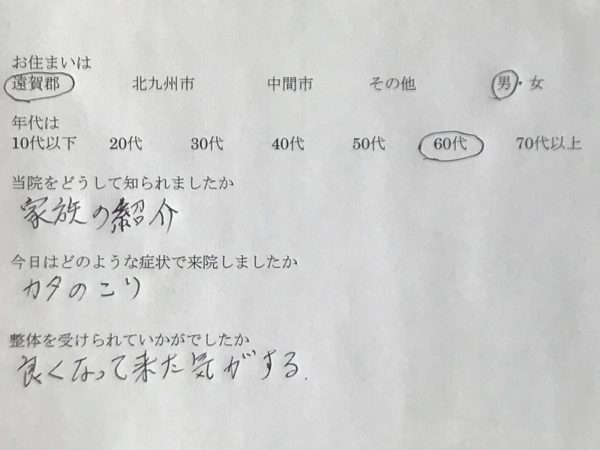 お住まいは
遠賀郡 北九州市 中間市 その他 男・女
年代は
10代以下 20代 30代 40代 50代 60代 70代以上
当院をどうして知られましたか
家族の紹介
今日はどのような症状で来院しましたか
カタのこり
整体を受けられていかがでしたか
良くなって来た気がする.